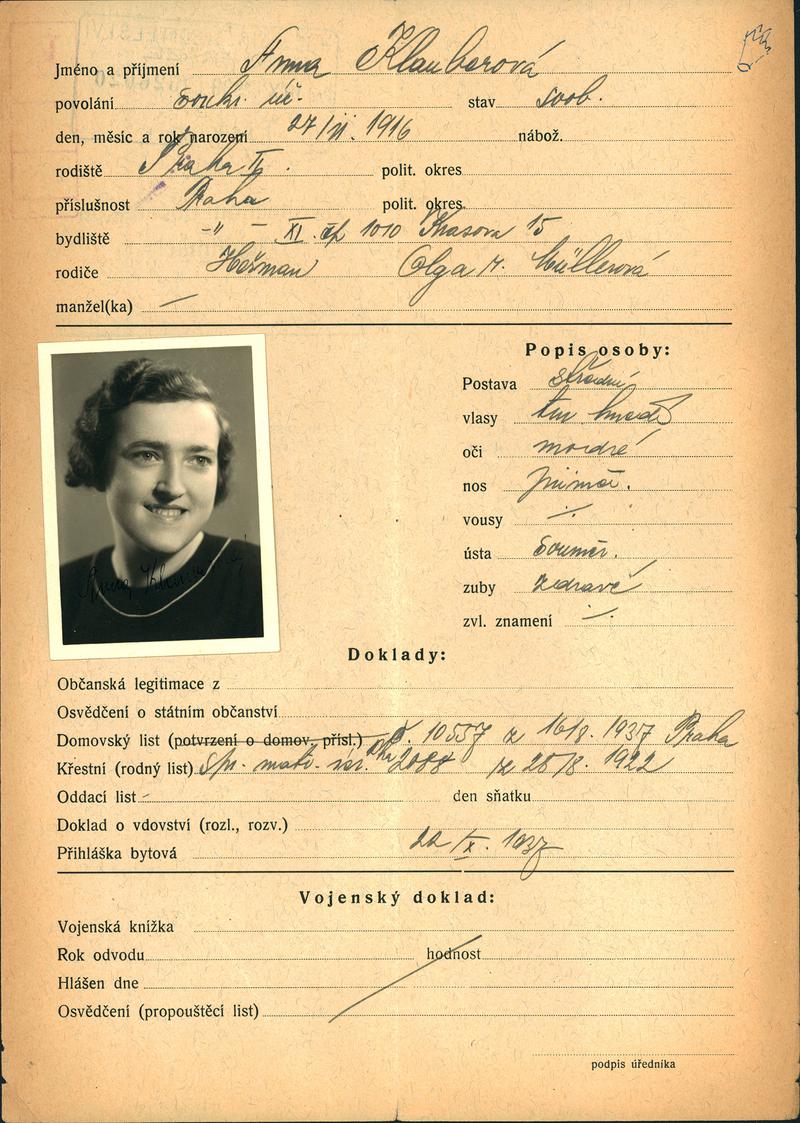 Jméno a příjmení Anna Klauberová
povolání soukr. úř. stav svob.
den, měsíc a rok narození 27/II. 1916 nábož.
rodiště Praha II. polit. okres
příslušnost Praha polit. okres
bydliště -"- XI. čp 1010 Krasova 15
rodiče Heřman Olga r. Müllerová
manžel(ka) —
Popis osoby:
Postava střední
vlasy tm hnědé
oči modré
nos přiměř.
vousy ·/·
ústa souměr.
zuby zdravé
zvl. znamení ·/·
Anna Klauberová
Doklady:
Občanská legitimace z
Osvědčení o státním občanství
Domovský list (potvrzení o domov. přísl.) č. 10557 z 16/8. 1937 Praha
Křestní (rodný list) 2088 z 28/8. 1922
Oddací list - den sňatku
Doklad o vdovství (rozl., rozv.)
Přihláška bytová 22/X. 1937
Vojenský doklad:
Vojenská knížka
Rok odvodu hodnost
Hlášen dne
Osvědčení (propouštěcí list)
podpis úředníka